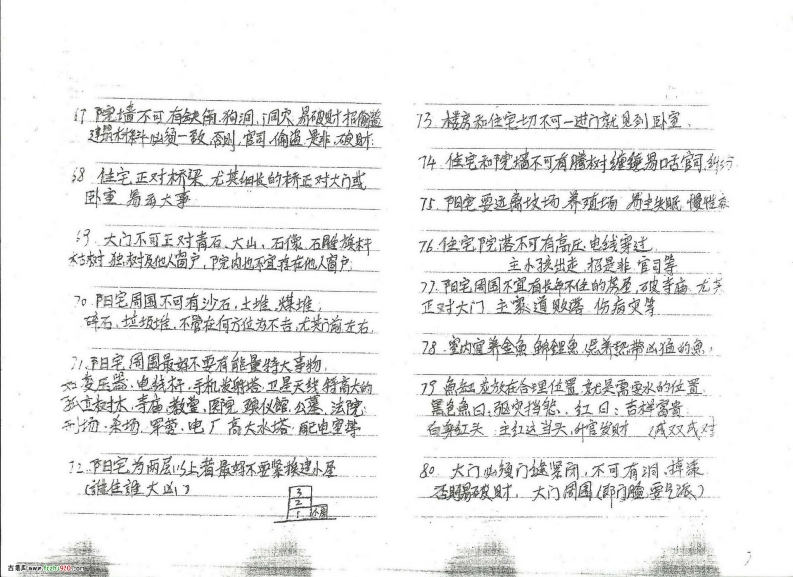 67 院墙不可有缺角,狗洞,洞穴 易破财招偷盗
必须一致,否则,官司,偷盗,是非,破财.
68 住宅正对桥梁 尤其细长的桥正对大门或
卧室 易出大事
69、大门不可正对青石,大山,石像,石雕旗杆
枯树 独树及他人窗户,院内也不宜存在他人窗户
70 阳宅周围不可有沙石,土堆,煤堆,
碎石,垃圾堆,不管在何方位为不吉,尤其前左右.
71、阳宅周围最好不要有能量特大事物,
如变压器,电线杆,手机发射塔,卫星天线 特高大的
孤立树木,寺庙,教堂,医院,殡仪馆,公墓,法院,
刑场,菜场,军营,电厂 高大水塔,配电室等
72、阳宅为两层以上者最好不要紧挨建小屋
(谁住谁大凶)
3
2
1
73、楼房和住宅切不可一进门就见到卧室.
74、住宅和院墙不可有腾树缠绕易口舌官司,纠纷
75、阳宅要远离坟场 养殖场 易主失眠 慢性病
76、住宅院落不可有高压电线穿过,
主小孩出走,招是非,官司等
77、阳宅周围不宜有长年不住的房屋,破寺庙,尤其
正对大门 主家道败落 伤病灾等
78、室内宜养金鱼 锦鲤鱼,忌养热带凶猛的鱼,
79 鱼缸应放在合理位置 就是需要水的位置
黑色鱼曰:驱灾挡煞、红曰:吉祥富贵
白身红头 主红运当头,升官发财 (成双成对
80、大门必须门缝紧闭,不可有洞,掉漆
否则易破财, 大门周围(即门脸要气派)
7